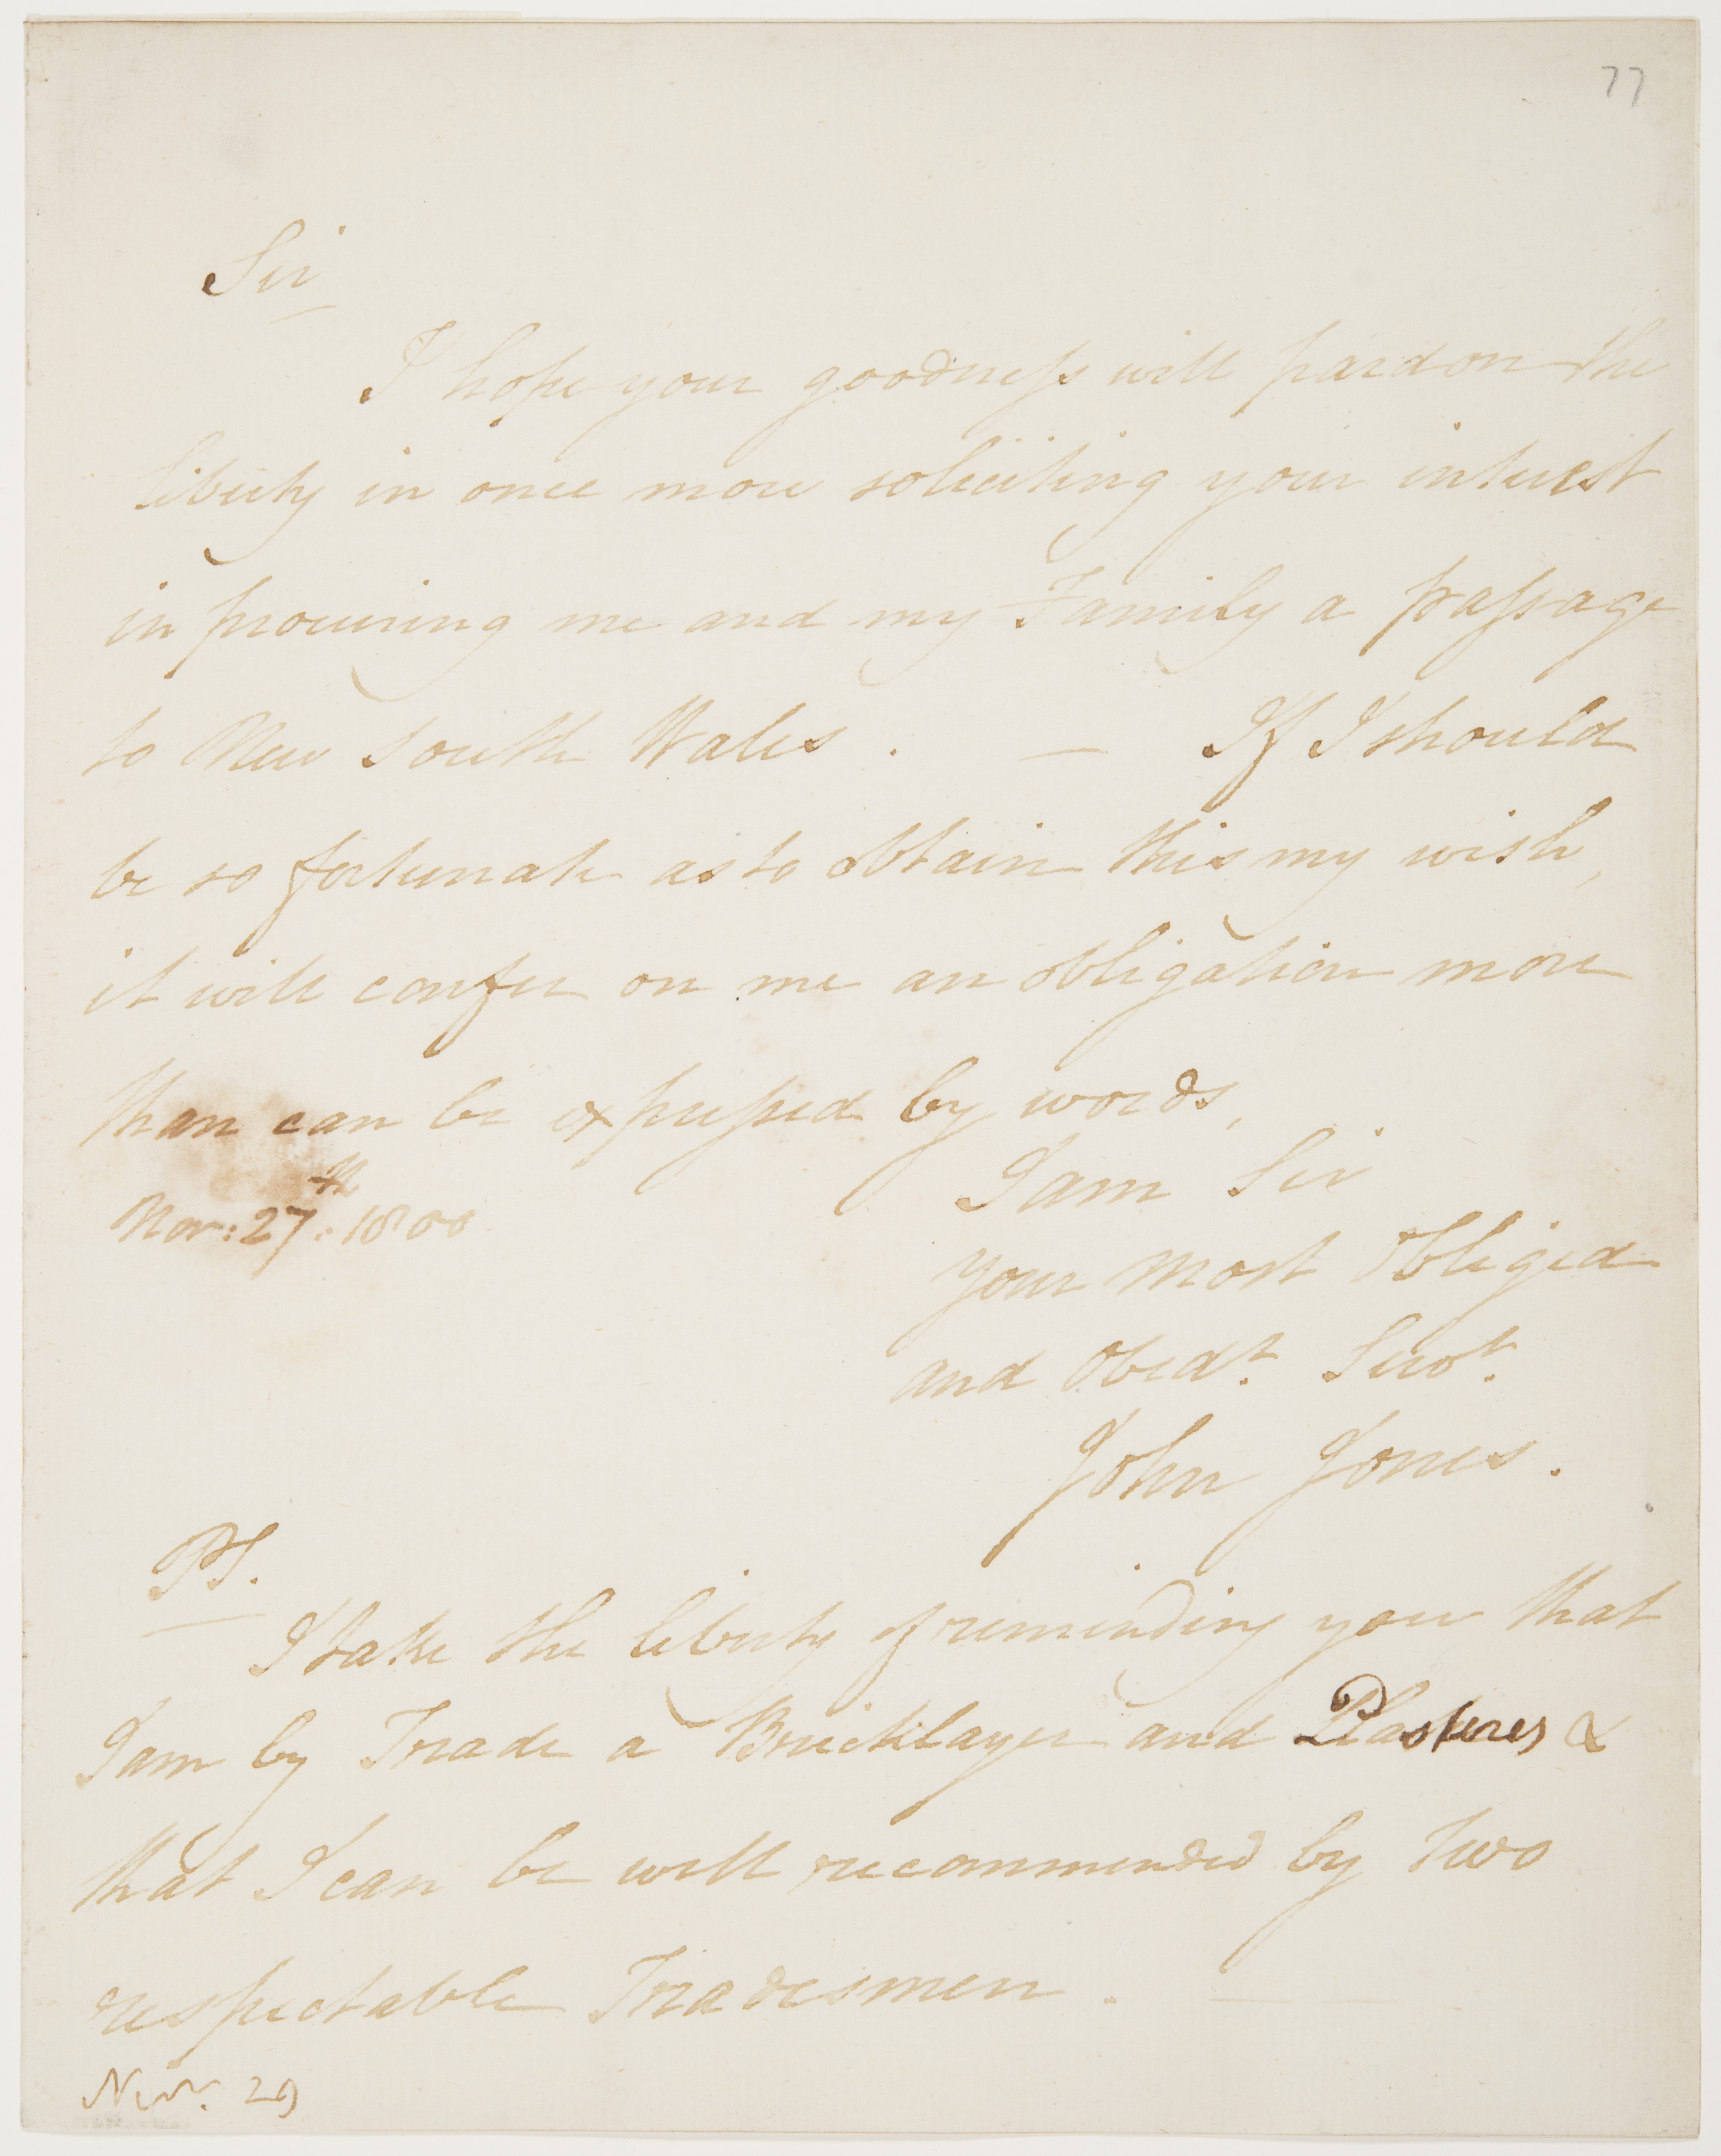 77
Sir
I hope your goodness will pardon the
liberty in once more soliciting your interest
in procuring me and my Family a passage
to New South Wales . — If I should
be so fortunate as to obtain this my wish,
it will confer on me an obligation more
than can be expressed by words,
I am Sir
Nov: 27th. 1800
your most Obliged
and Obedt. Servt.
John Jones.
PS.
I take the liberty of reminding you that
I am by Trade a Bricklayer and Plasterer &
that I can be well recommended by two
respectable Tradesmen . —
Novr. 29